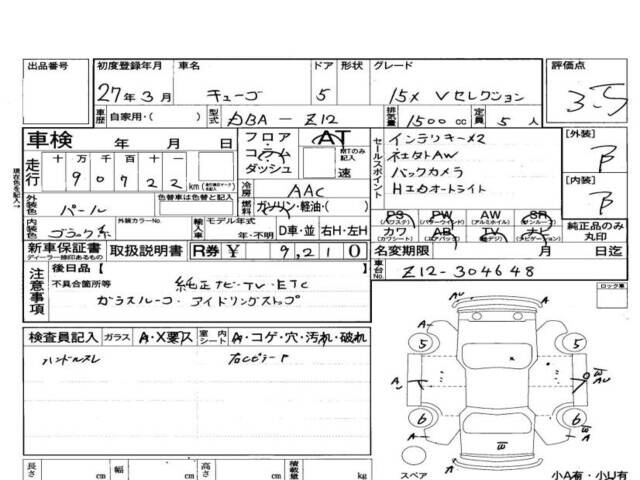 出品番号
初度登録年月 27年3月
車名 キューブ
ドア 5
形状
グレード 15X Vセレクション
評価点 3.5
車歴 自家用・( )
型式 DBA-Z12
排気量 1500cc
定員 5人
車検 年 月 日
フロア・コラム・ダッシュ
AT MTのみ記入 速
セールスポイント
インテリキー×2
社外AW
バックカメラ
[外装] B
[内装] B
現在色を記入→
走行 十万千百十 90722km
冷房 AAC
燃料 ガソリン・軽油・( )
外装色 パール
色替車は色替と記入
内装色 ブラック系
外装カラーNo.
輸入車 モデル年式 年・不明
D車・並 右H・左H
PS (パワステ) PW (パワーウインド) AW (アルミホイル) SR (サンルーフ)
カワ (カワシート) AB (エアバッグ) TV (純デジ) ナビ (ナビゲーション)
純正品のみ丸印
新車保証書 ディーラー捺印あるもの
取扱説明書
R券 ¥ 9,210
名変期限 月 日迄
注意事項
後日品【 】
不具合箇所等 純正ナビ・TV・ETC
ガラスルーフ・アイドリングストップ
車台No. Z12-304648
ロック車
検査員記入
ガラス A・X要ス
室内シート A・コゲ・穴・汚れ・破れ
ハンドルスレ
A
AU
A
5
5
A
W
AU
6
6
A
W
W
A
スペア
小A有・小U有
長さ cm 幅 cm 高さ cm 積載量 kg